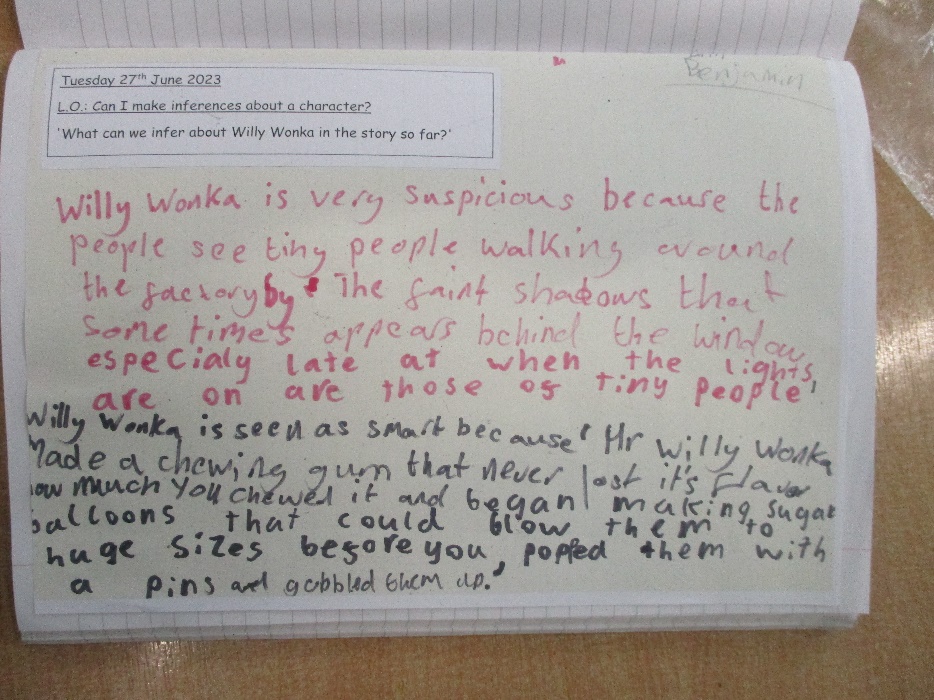 Benjamin
Tuesday 27th June 2023
L.O.: Can I make inferences about a character?
'What can we infer about Willy Wonka in the story so far?'
Willy Wonka is very suspicious because the
people see tiny people walking around
the factory by The faint shadows that
Some times appears behind the window,
especialy late at when the lights
are on are those of tiny people'
Willy Wonka is seen as smart because 'Mr Willy Wonka
Made a chewing gum that never lost it's flavor
how much you chewed it and began making sugar
balloons that could blow them to
huge sizes before you, popped them with
a pins and gobbled them up.'